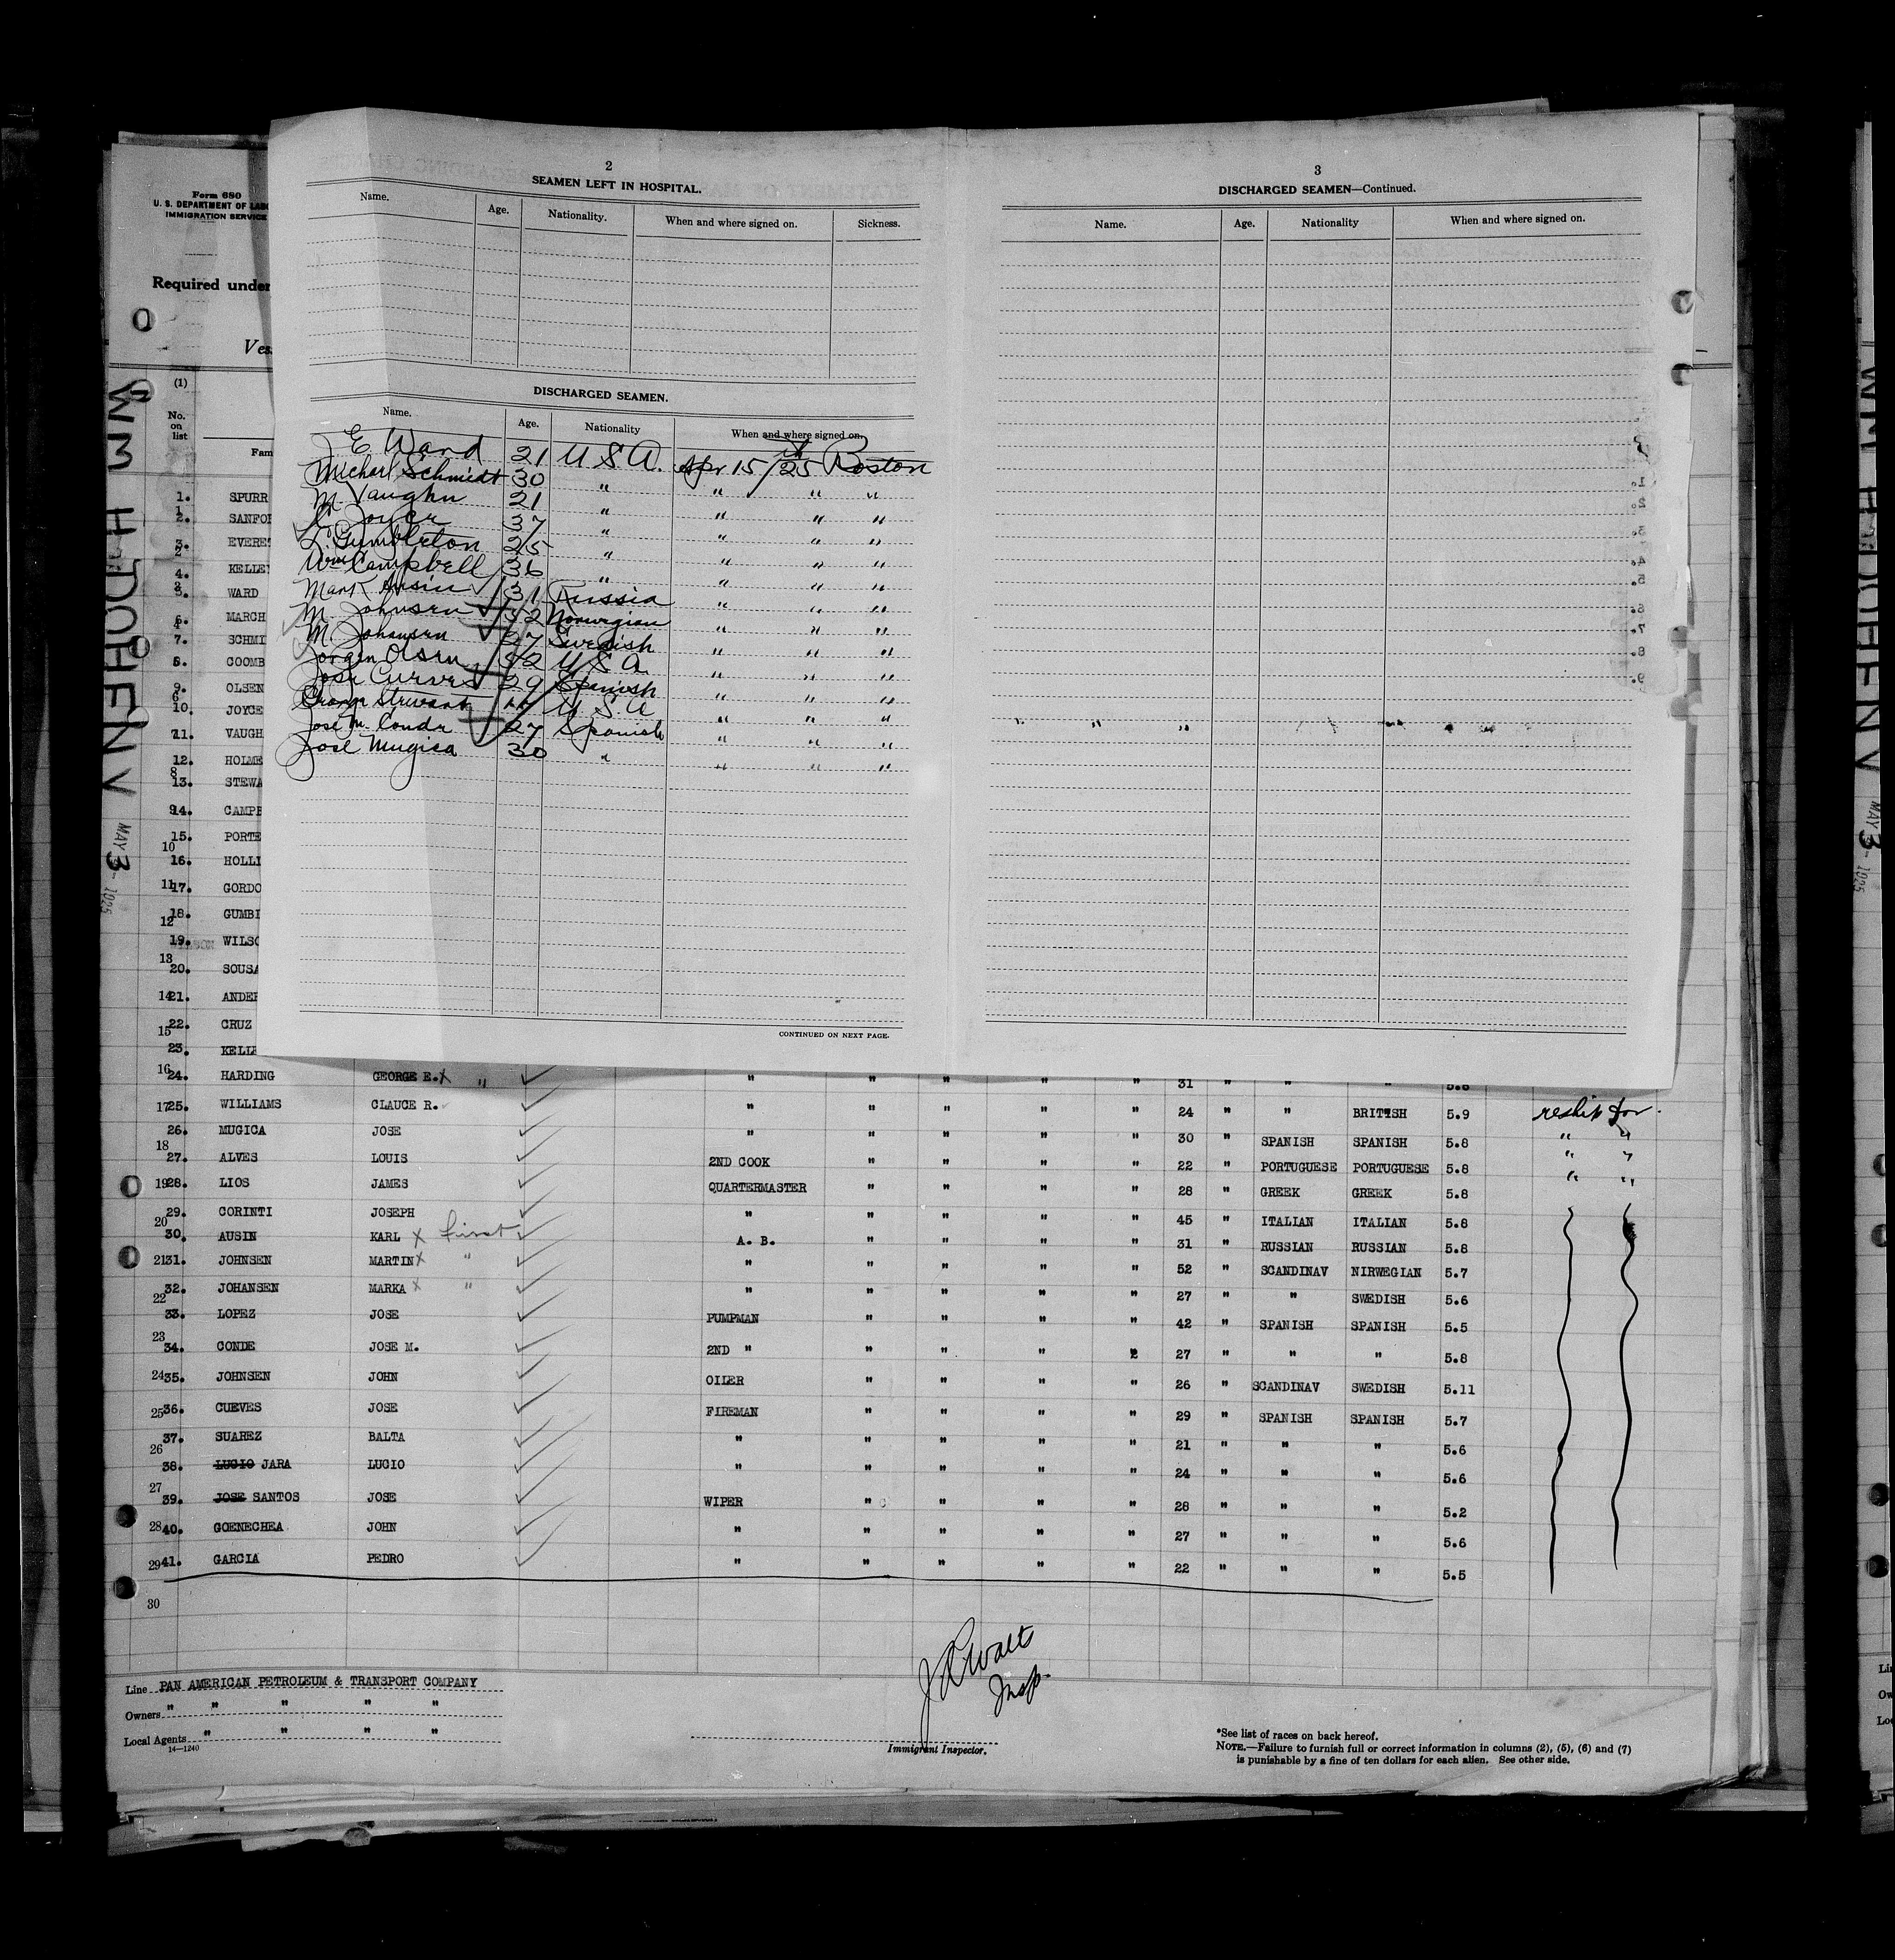 Form 680
U. S. DEPARTMENT OF LABO
IMMIGRATION SERVICE
Required under
Ves
WM H DOHENY
MAY 3 - 1925
(1)
No. on list
Fam
2
SEAMEN LEFT IN HOSPITAL.
Name. Age. Nationality. When and where signed on. Sickness.
DISCHARGED SEAMEN.
Name. Age. Nationality When and where signed on.
E Ward 21 U S A. Apr 15/25 Boston
Michael Schmidt 30 " " " "
M. Vaughn 21 " " " "
Joyce 37 " " " "
L. Gumbleton 25 " " " "
Wm Campbell 36 " " " "
Mark Ausin 31 Russia " " "
M. Johnsen 52 Norwegian " " "
M. Johansen 27 Swedish " " "
Jorgen Olsen 52 U S A. " " "
Jose Cueves 29 Spanish " " "
Stewart U. S. A " " "
Jose M. Conde 27 Spanish " " "
Jose Mugica 30 " " " "
CONTINUED ON NEXT PAGE.
3
DISCHARGED SEAMEN—Continued.
Name. Age. Nationality When and where signed on.
1. SPURR
2. SANFO
3. EVERE
4. KELLE
5. WARD
6. MARCH
7. SCHMI
8. COOMB
9. OLSEN
10. JOYCE
11. VAUGH
12. HOLME
13. STEWA
14. CAMPB
15. PORTE
16. HOLLI
17. GORDO
18. GUMBL
19. WILSO
20. SOUSA
21. ANDER
22. CRUZ
23. KELLE
24. HARDING GEORGE E. X " " " " " " 31 " " " 5.8
25. WILLIAMS CLAUCE R. " " " " " 24 " " BRITISH 5.9 reship for
26. MUGICA JOSE " " " " " 30 " SPANISH SPANISH 5.8 " "
27. ALVES LOUIS 2ND COOK " " " " 22 " PORTUGUESE PORTUGUESE 5.8 " "
28. LIOS JAMES QUARTERMASTER " " " " 28 " GREEK GREEK 5.8 " "
29. CORINTI JOSEPH " " " " " 45 " ITALIAN ITALIAN 5.8
30. AUSIN KARL X first A. B. " " " " 31 " RUSSIAN RUSSIAN 5.8
31. JOHNSEN MARTIN X " " " " " " 52 " SCANDINAV NIRWEGIAN 5.7
32. JOHANSEN MARKA X " " " " " " 27 " " SWEDISH 5.6
33. LOPEZ JOSE PUMPMAN " " " " 42 " SPANISH SPANISH 5.5
34. CONDE JOSE M. 2ND " " " " 2 27 " " " 5.8
35. JOHNSEN JOHN OILER " " " " 26 " SCANDINAV SWEDISH 5.11
36. CUEVES JOSE FIREMAN " " " " 29 " SPANISH SPANISH 5.7
37. SUAREZ BALTA " " " " " 21 " " " 5.6
38. LUCIO JARA LUCIO " " " " " 24 " " " 5.6
39. JOSE SANTOS JOSE WIPER " " " " 28 " " " 5.2
40. GOENECHEA JOHN " " " " " 27 " " " 5.6
41. GARCIA PEDRO " " " " " 22 " " " 5.5
30
Line PAN AMERICAN PETROLEUM & TRANSPORT COMPANY
Owners " " " " "
Local Agents " " " "
14—1240
Insp.
Immigrant Inspector.
*See list of races on back hereof.
NOTE.—Failure to furnish full or correct information in columns (2), (5), (6) and (7)
is punishable by a fine of ten dollars for each alien. See other side.